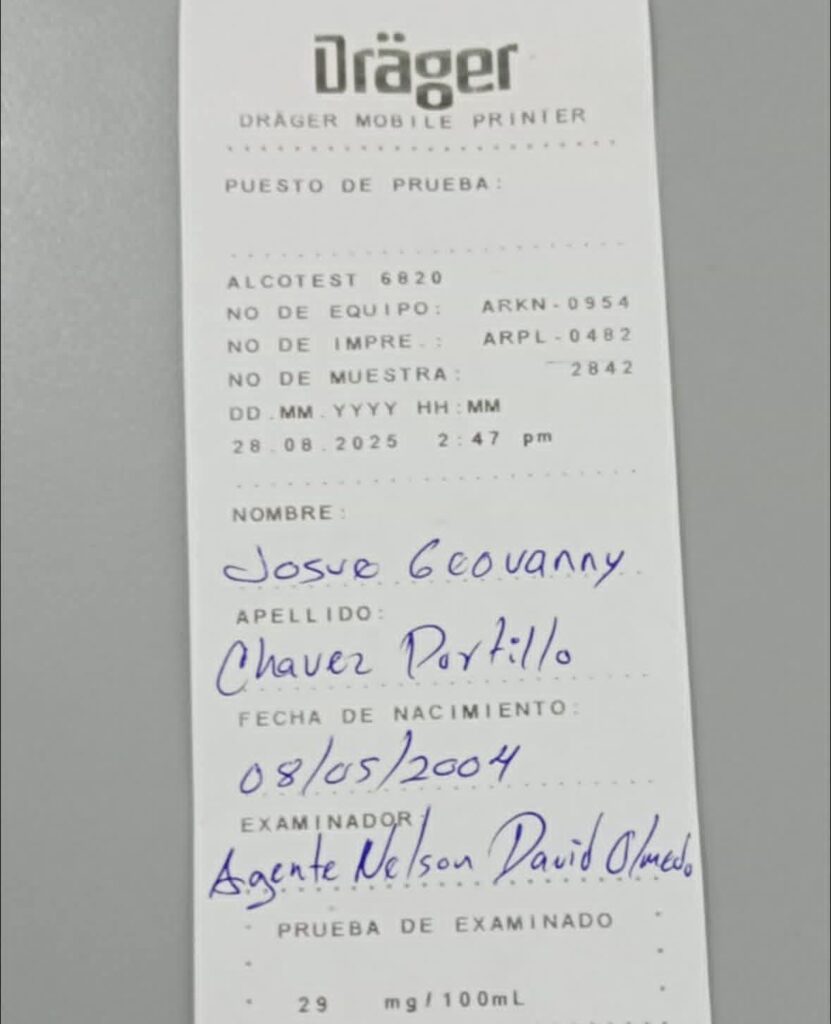 Dräger
DRÄGER MOBILE PRINTER
PUESTO DE PRUEBA:
ALCOTEST 6820
NO DE EQUIPO: ARKN-0954
NO DE IMPRE.: ARPL-0482
NO DE MUESTRA: 2842
DD.MM.YYYY HH:MM
28.08.2025 2:47 pm
NOMBRE:
Josue Geovanny
APELLIDO:
Chavez Portillo
FECHA DE NACIMIENTO:
08/05/2004
EXAMINADOR:
Agente Nelson David Olmedo
PRUEBA DE EXAMINADO
29 mg/100mL